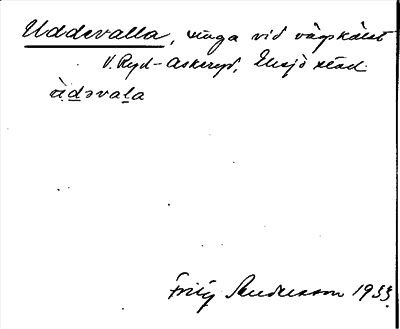 Uddevalla, stuga vid vägskälet
V. Ryd - Askeryd, Eksjö stad.
ùd̲əval̲a
Fritz Andersson 1933.